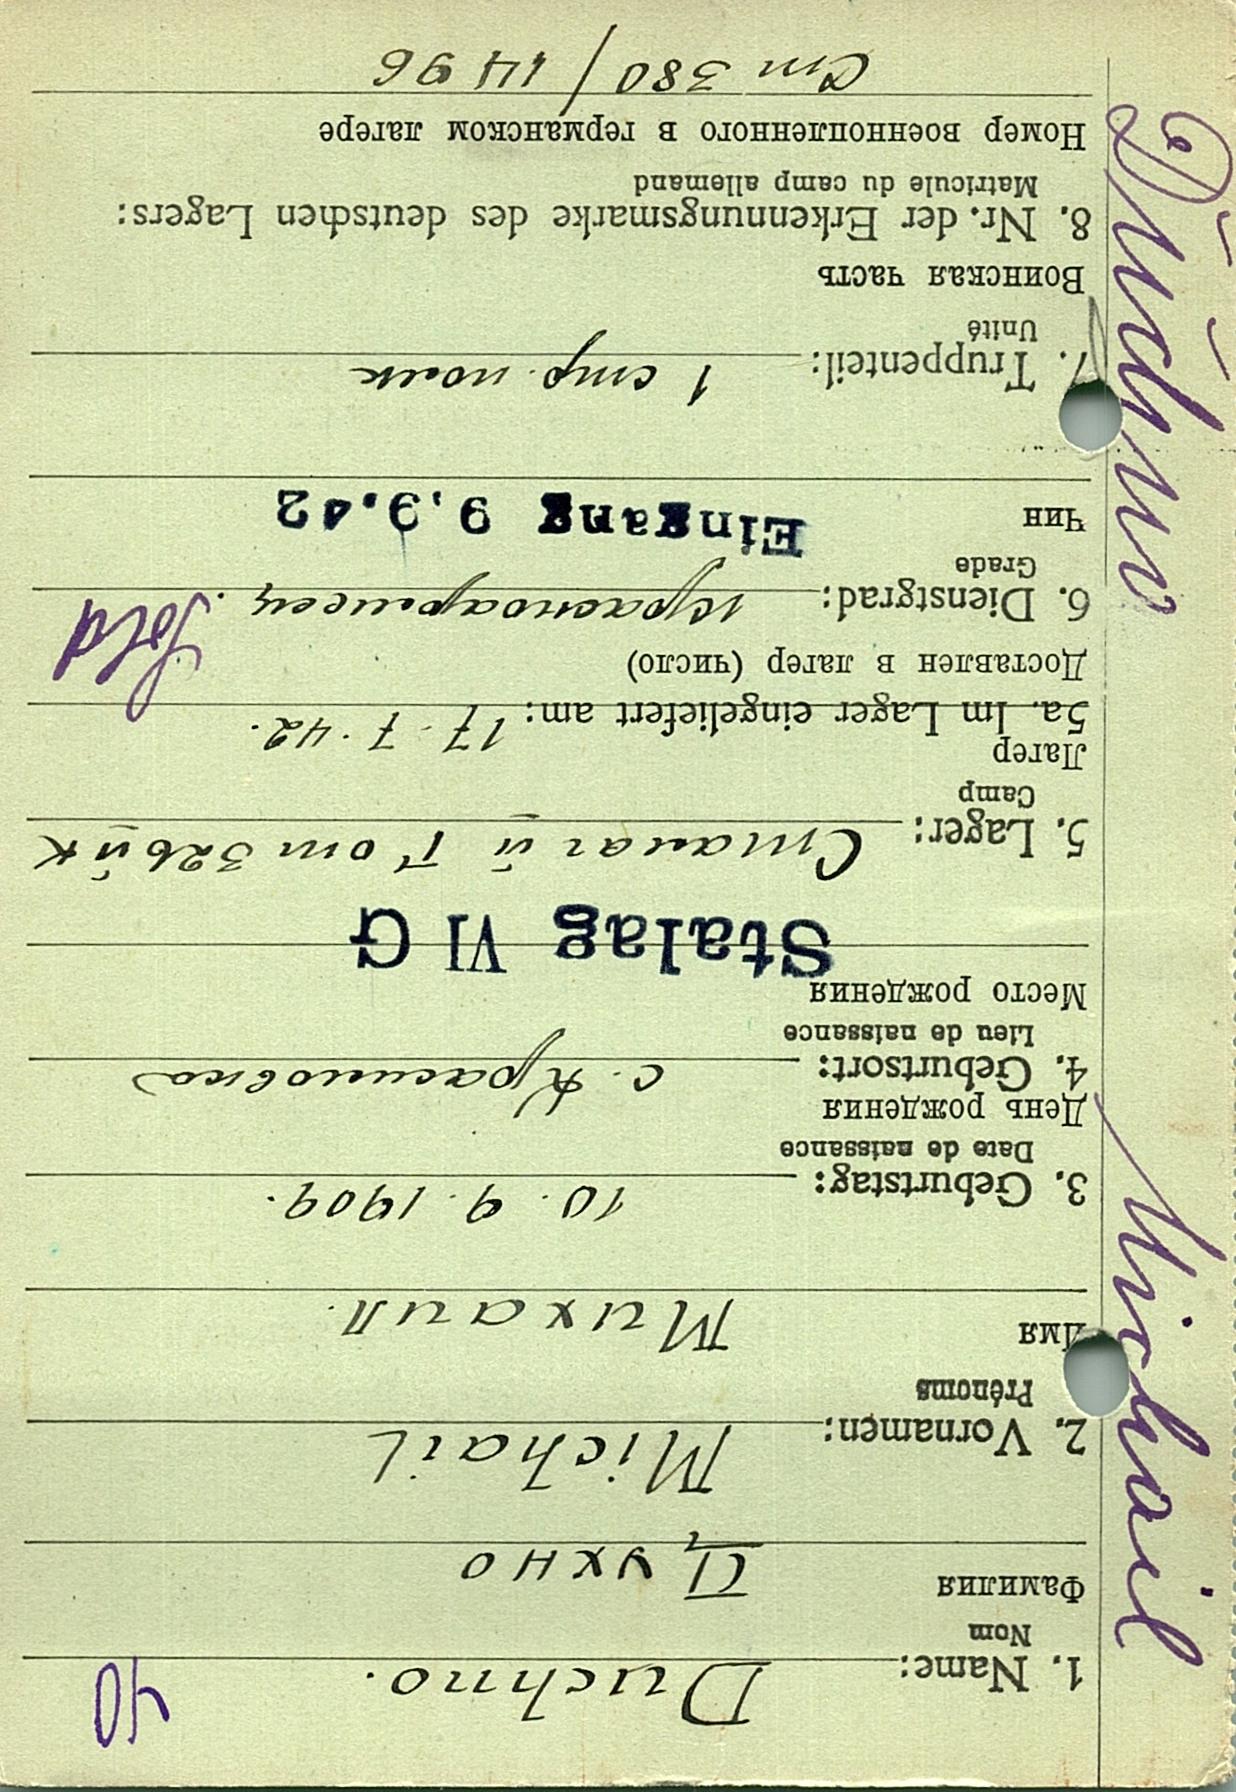 40
1. Name: Duchno.
Nom
Фамилия Духно
2. Vornamen: Michail
Prénoms
Имя Михаил.
3. Geburtstag: 10.9.1909.
Date de naissance
День рождения
4. Geburtsort: с. Красиловка
Lieu de naissance
Место рождения
Stalag VI G
5. Lager: Сталаг й Г от 326 й К
Camp
Лагер
5a. Im Lager eingeliefert am: 17.7.42.
Доставлен в лагер (число)
6. Dienstgrad: Красноармеец. Sold
Grade
Чин
Eingang 9.9.42
7. Truppenteil: 1 стр. полк
Unité
Воинская часть
8. Nr. der Erkennungsmarke des deutschen Lagers:
Matricule du camp allemand
Номер военнопленного в германском лагере
Ст 380/1496
Duchno Michail